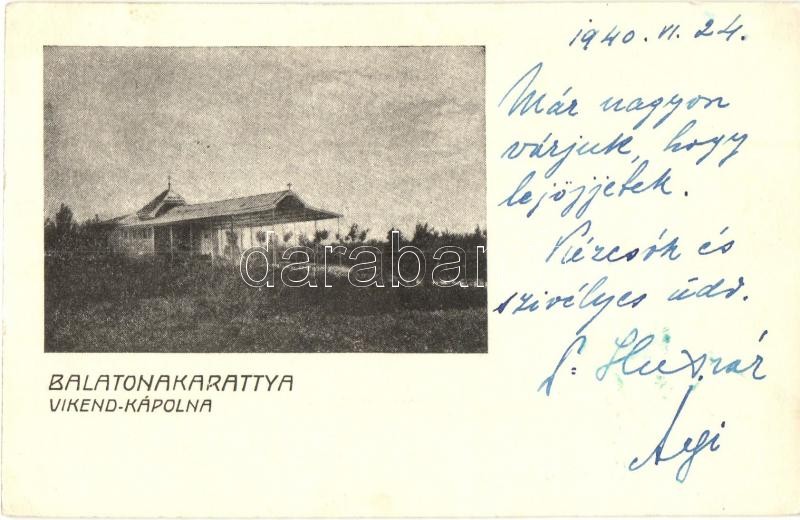 1940. VI. 24.
Már nagyon
várjuk, hogy
lejöjjetek.
Kézcsók és
szivélyes üdv.
Huszár
Ági
darabanth
BALATONAKARATTYA
VIKEND-KÁPOLNA